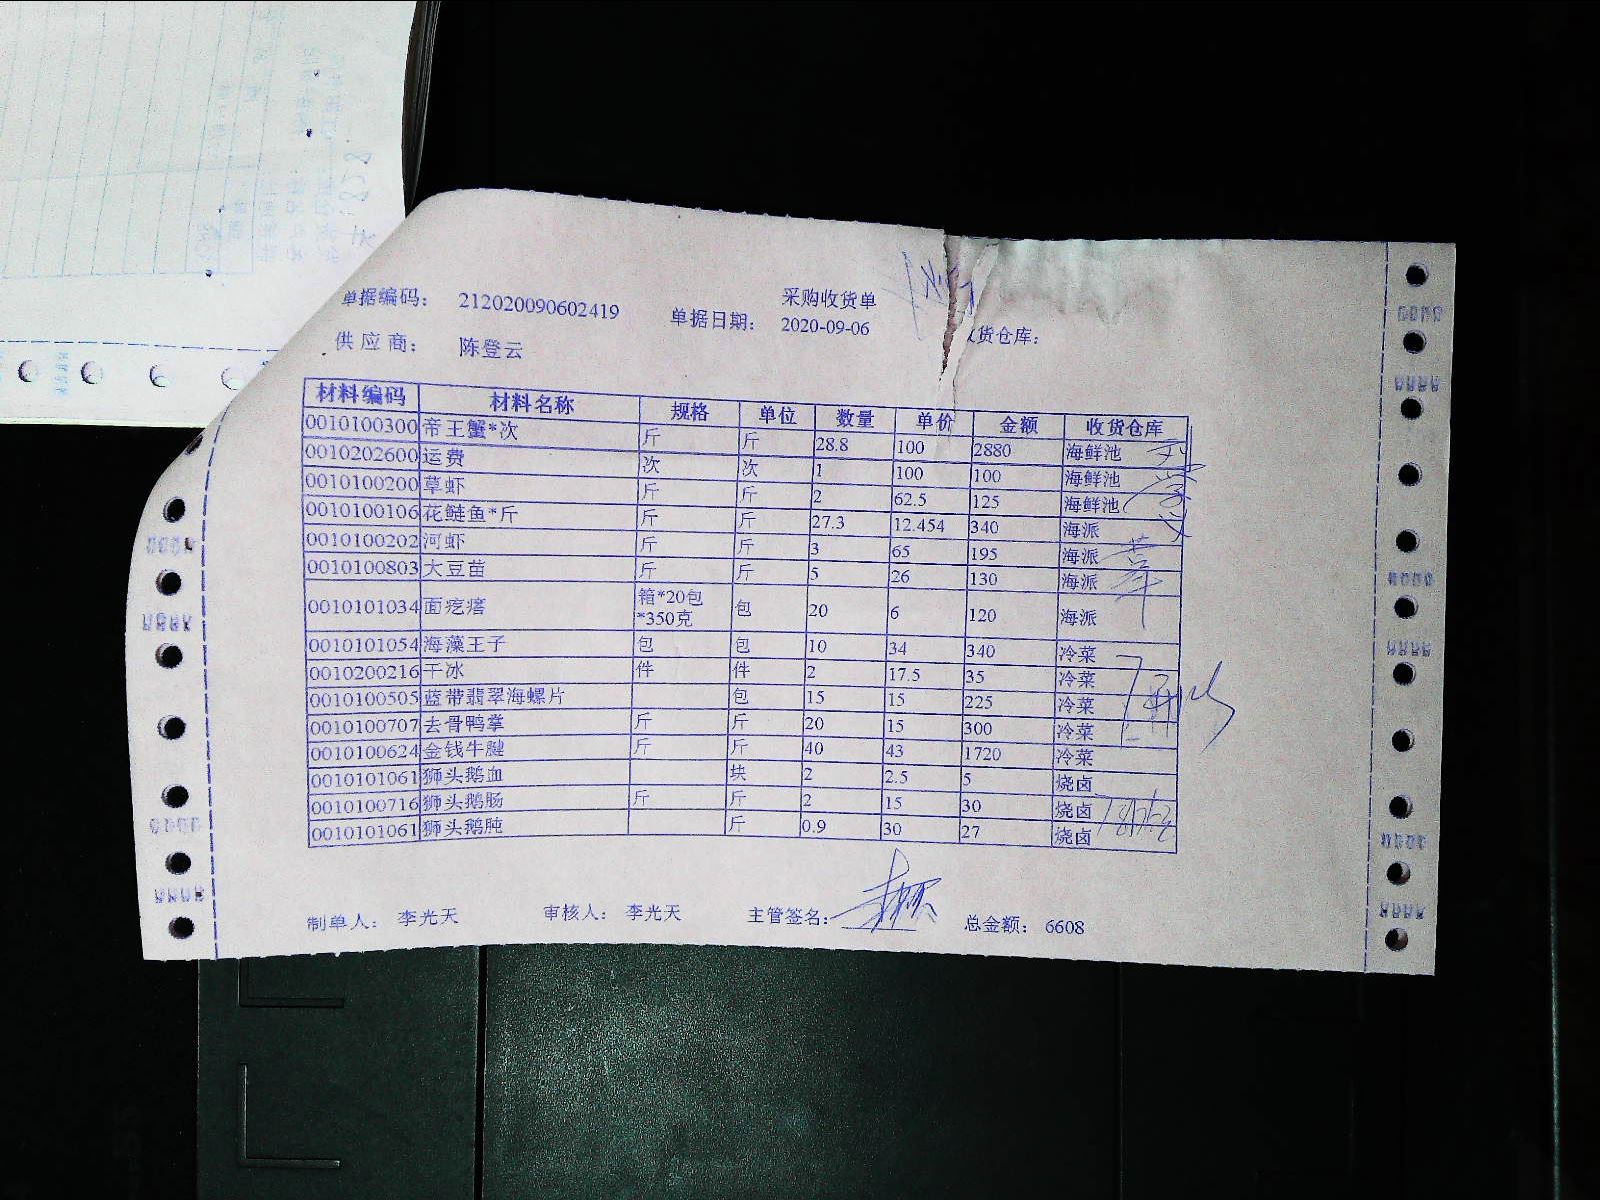 采购收货单
单据编码： 212020090602419 单据日期： 2020-09-06 收货仓库：
供应商： 陈登云
材料编码 材料名称 规格 单位 数量 单价 金额 收货仓库
0010100300 帝王蟹*次 斤 斤 28.8 100 2880 海鲜池
0010202600 运费 次 次 1 100 100 海鲜池
0010100200 草虾 斤 斤 2 62.5 125 海鲜池
0010100106 花鲢鱼*斤 斤 斤 27.3 12.454 340 海派
0010100202 河虾 斤 斤 3 65 195 海派
0010100803 大豆苗 斤 斤 5 26 130 海派
0010101034 面疙瘩 箱*20包*350克 包 20 6 120 海派
0010101054 海藻王子 包 包 10 34 340 冷菜
0010200216 干冰 件 件 2 17.5 35 冷菜
0010100505 蓝带翡翠海螺片 包 15 15 225 冷菜
0010100707 去骨鸭掌 斤 斤 20 15 300 冷菜
0010100624 金钱牛腱 斤 斤 40 43 1720 冷菜
0010101061 狮头鹅血 块 2 2.5 5 烧卤
0010100716 狮头鹅肠 斤 斤 2 15 30 烧卤
0010101061 狮头鹅肫 斤 0.9 30 27 烧卤
制单人： 李光天 审核人： 李光天 主管签名： 总金额： 6608